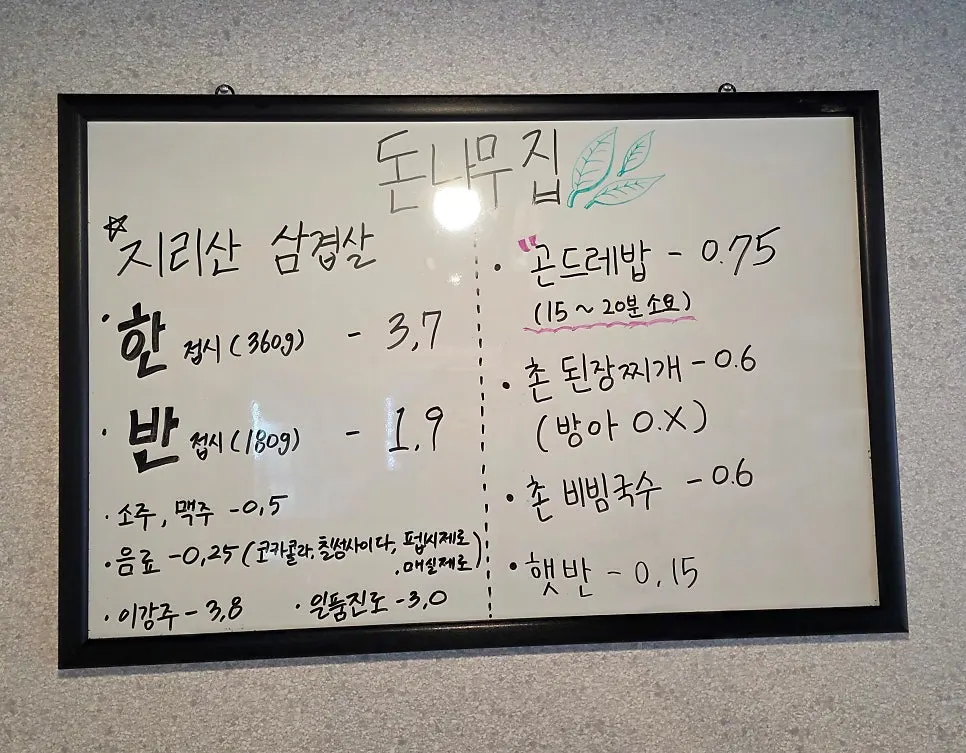 돈나무집
☆지리산 삼겹살
· 한 접시 (360g) - 3,7
· 반 접시 (180g) - 1,9
· 소주, 맥주 - 0,5
· 음료 - 0,25 (코카콜라, 칠성사이다, 펩시제로
, 매실제로)
· 이강주 - 3,8 · 일품진로 - 3,0
· "곤드레밥 - 0.75
(15 ~ 20분 소요)
· 촌 된장찌개 - 0.6
(방아 O.X)
· 촌 비빔국수 - 0.6
· 햇반 - 0,15